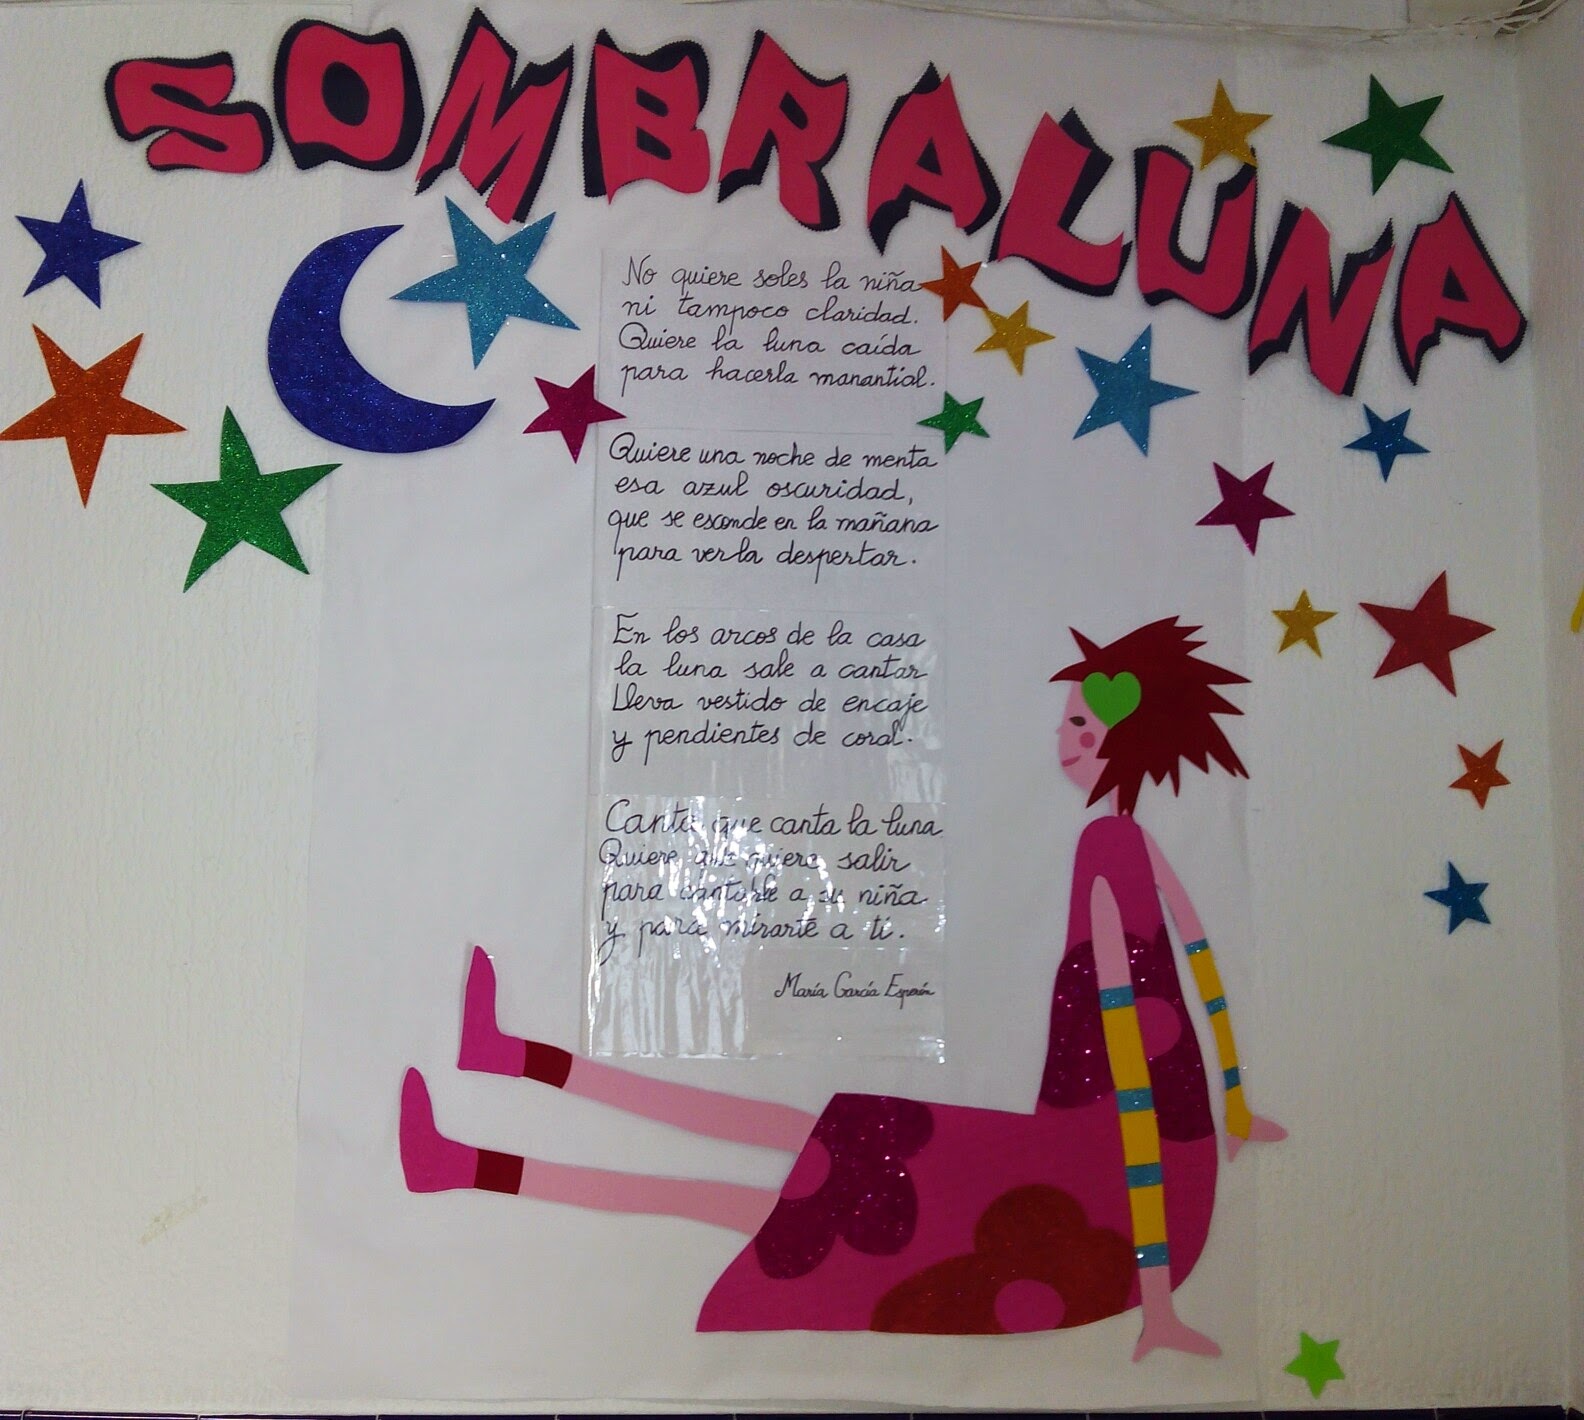 SOMBRALUNA
No quiere soles la niña
ni tampoco claridad.
Quiere la luna caída
para hacerla manantial.
Quiere una noche de menta
esa azul oscuridad,
que se esconde en la mañana
para verla despertar.
En los arcos de la casa
la luna sale a cantar
Lleva vestido de encaje
y pendientes de coral.
Canta que canta la luna
Quiere que quiere salir
para cantarle a su niña
y para mirarte a ti.
María García Esperón